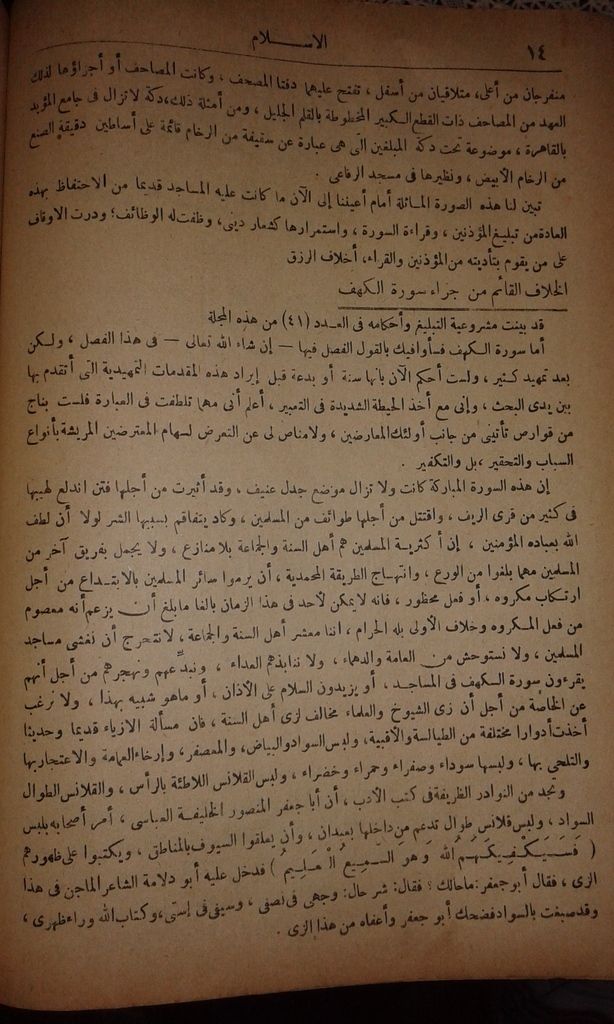 ١٤
الاســـلام
منفرجان من أعلى، متلاقيان من أسفل ، تفتح عليهما دفتا المصحف ، وكانت المصاحف أو أجزاؤها لذلك
العهد من المصاحف ذات القطع الكبير المخطوطة بالقلم الجليل ، ومن أمثلة ذلك، دكة لا تزال فى جامع المؤيد
بالقاهرة ، موضوعة تحت دكة المبلغين التى هى عبارة عن سقيفة من الرخام قائمة على أساطين دقيقة الصنع
من الرخام الأبيض ، ونظيرها فى مسجد الرفاعى .
تبين لنا هذه الصورة المــاثلة أمام أعيننا إلى الآن ما كانت عليه المساجد قديما من الاحتفاظ بهذه
العادة من تبليغ المؤذنين ، وقراءة السورة ، واستمرارها كشعار دينى، وظفت له الوظائف؛ ودرت الاوقاف
على من يقوم بتأديته من المؤذنين والقراء، أخلاف الرزق
الخلاف القائم من جراء سورة الكهف
قد بينت مشروعية التبليغ وأحكامه فى العدد (٤١) من هذه المجلة
أما سورة الكهف فسأوافيك بالقول الفصل فيها — إن شاء الله تعالى — فى هذا الفصل ، ولكن
بعد تمهيد كثير ، ولست أحكم الآن بأنها سنة أو بدعة قبل إيراد هذه المقدمات التمهيدية التى أتقدم بها
بين يدى البحث ، وإنى مع أخذ الحيطة الشديدة فى التعبير ، أعلم أنى مهما تلطفت فى العبارة فلست بناج
من قوارص تأتينى من جانب أولئك المعارضين ، ولا مناص لى عن التعرض لسهام المعترضين المريشة بأنواع
السباب والتحقير ، بل والتكفير .
إن هذه السورة المباركة كانت ولا تزال موضع جدل عنيف ، وقد أثيرت من أجلها فتن اندلع لهيبها
فى كثير من قرى الريف ، واقتتل من أجلها طوائف من المسلمين ، وكاد يتفاقم بسببها الشر لولا أن لطف
الله بعباده المؤمنين ، إن أكثرية المسلمين هم أهل السنة والجماعة بلا منازع ، ولا يجمل بفريق آخر من
المسلمين مهما بلغوا من الورع ، وانتهــاج الطريقة المحمدية ، أن يرموا سائر المسلمين بالابتــداع من أجل
ارتكاب مكروه ، أو فعل محظور ، فانه لا يمكن لأحد فى هذا الزمان بالغا ما بلغ أن يزعم أنه معصوم
من فعل المكروه وخلاف الأولى بله الحرام ، اننا معشر أهل السنة والجماعة، لا نتحرج أن نغشى مساجد
المسلمين ، ولا نستوحش من العامة والدهماء ، ولا ننابذهم العداء ، ونبدعهم ونهجرهم من أجل أنهم
يقرءون سورة الكهف فى المساجد ، أو يزيدون السلام على الأذان ، أو ماهو شبيه بهذا ، ولا نرغب
عن الخاصة من أجل أن زى الشيوخ والعلماء مخالف لزى أهل السنة ، فان مسألة الازياء قديما وحديثا
أخذت أدوارا مختلفة من الطيالسة والأقبية، ولبس السواد والبياض، والمعصفر، وإرخاء العمامة والاعتجار بها
والتلحى بها ، ولبسها سوداء وصفراء وحمراء وخضراء ، ولبس القلانس اللاطئة بالرأس ، والقلانس الطوال
ونجد من النوادر الظريفة فى كتب الأدب ، أن أبا جعفر المنصور الخليفــة العباسى ، أمر أصحابه بلبس
السواد ، ولبس قلانس طوال تدعم من داخلها بعيدان ، وأن يعلقوا السيوف بالمناطق ، ويكتبوا على ظهورهم
( فَسَيَكْفِيكَهُمُ اللهُ وَهُوَ السَّمِيعُ الْعَلِيمُ ) فدخل عليه أبو دلامة الشاعر الماجن فى هذا
الزى ، فقال أبو جعفر: ما حالك ؟ فقال: شر حال: وجهى فى نصفى ، وسيفى فى إستى، وكتاب الله وراء ظهرى ،
وقد صبغت بالسواد فضحك أبو جعفر وأعفاه من هذا الزى .